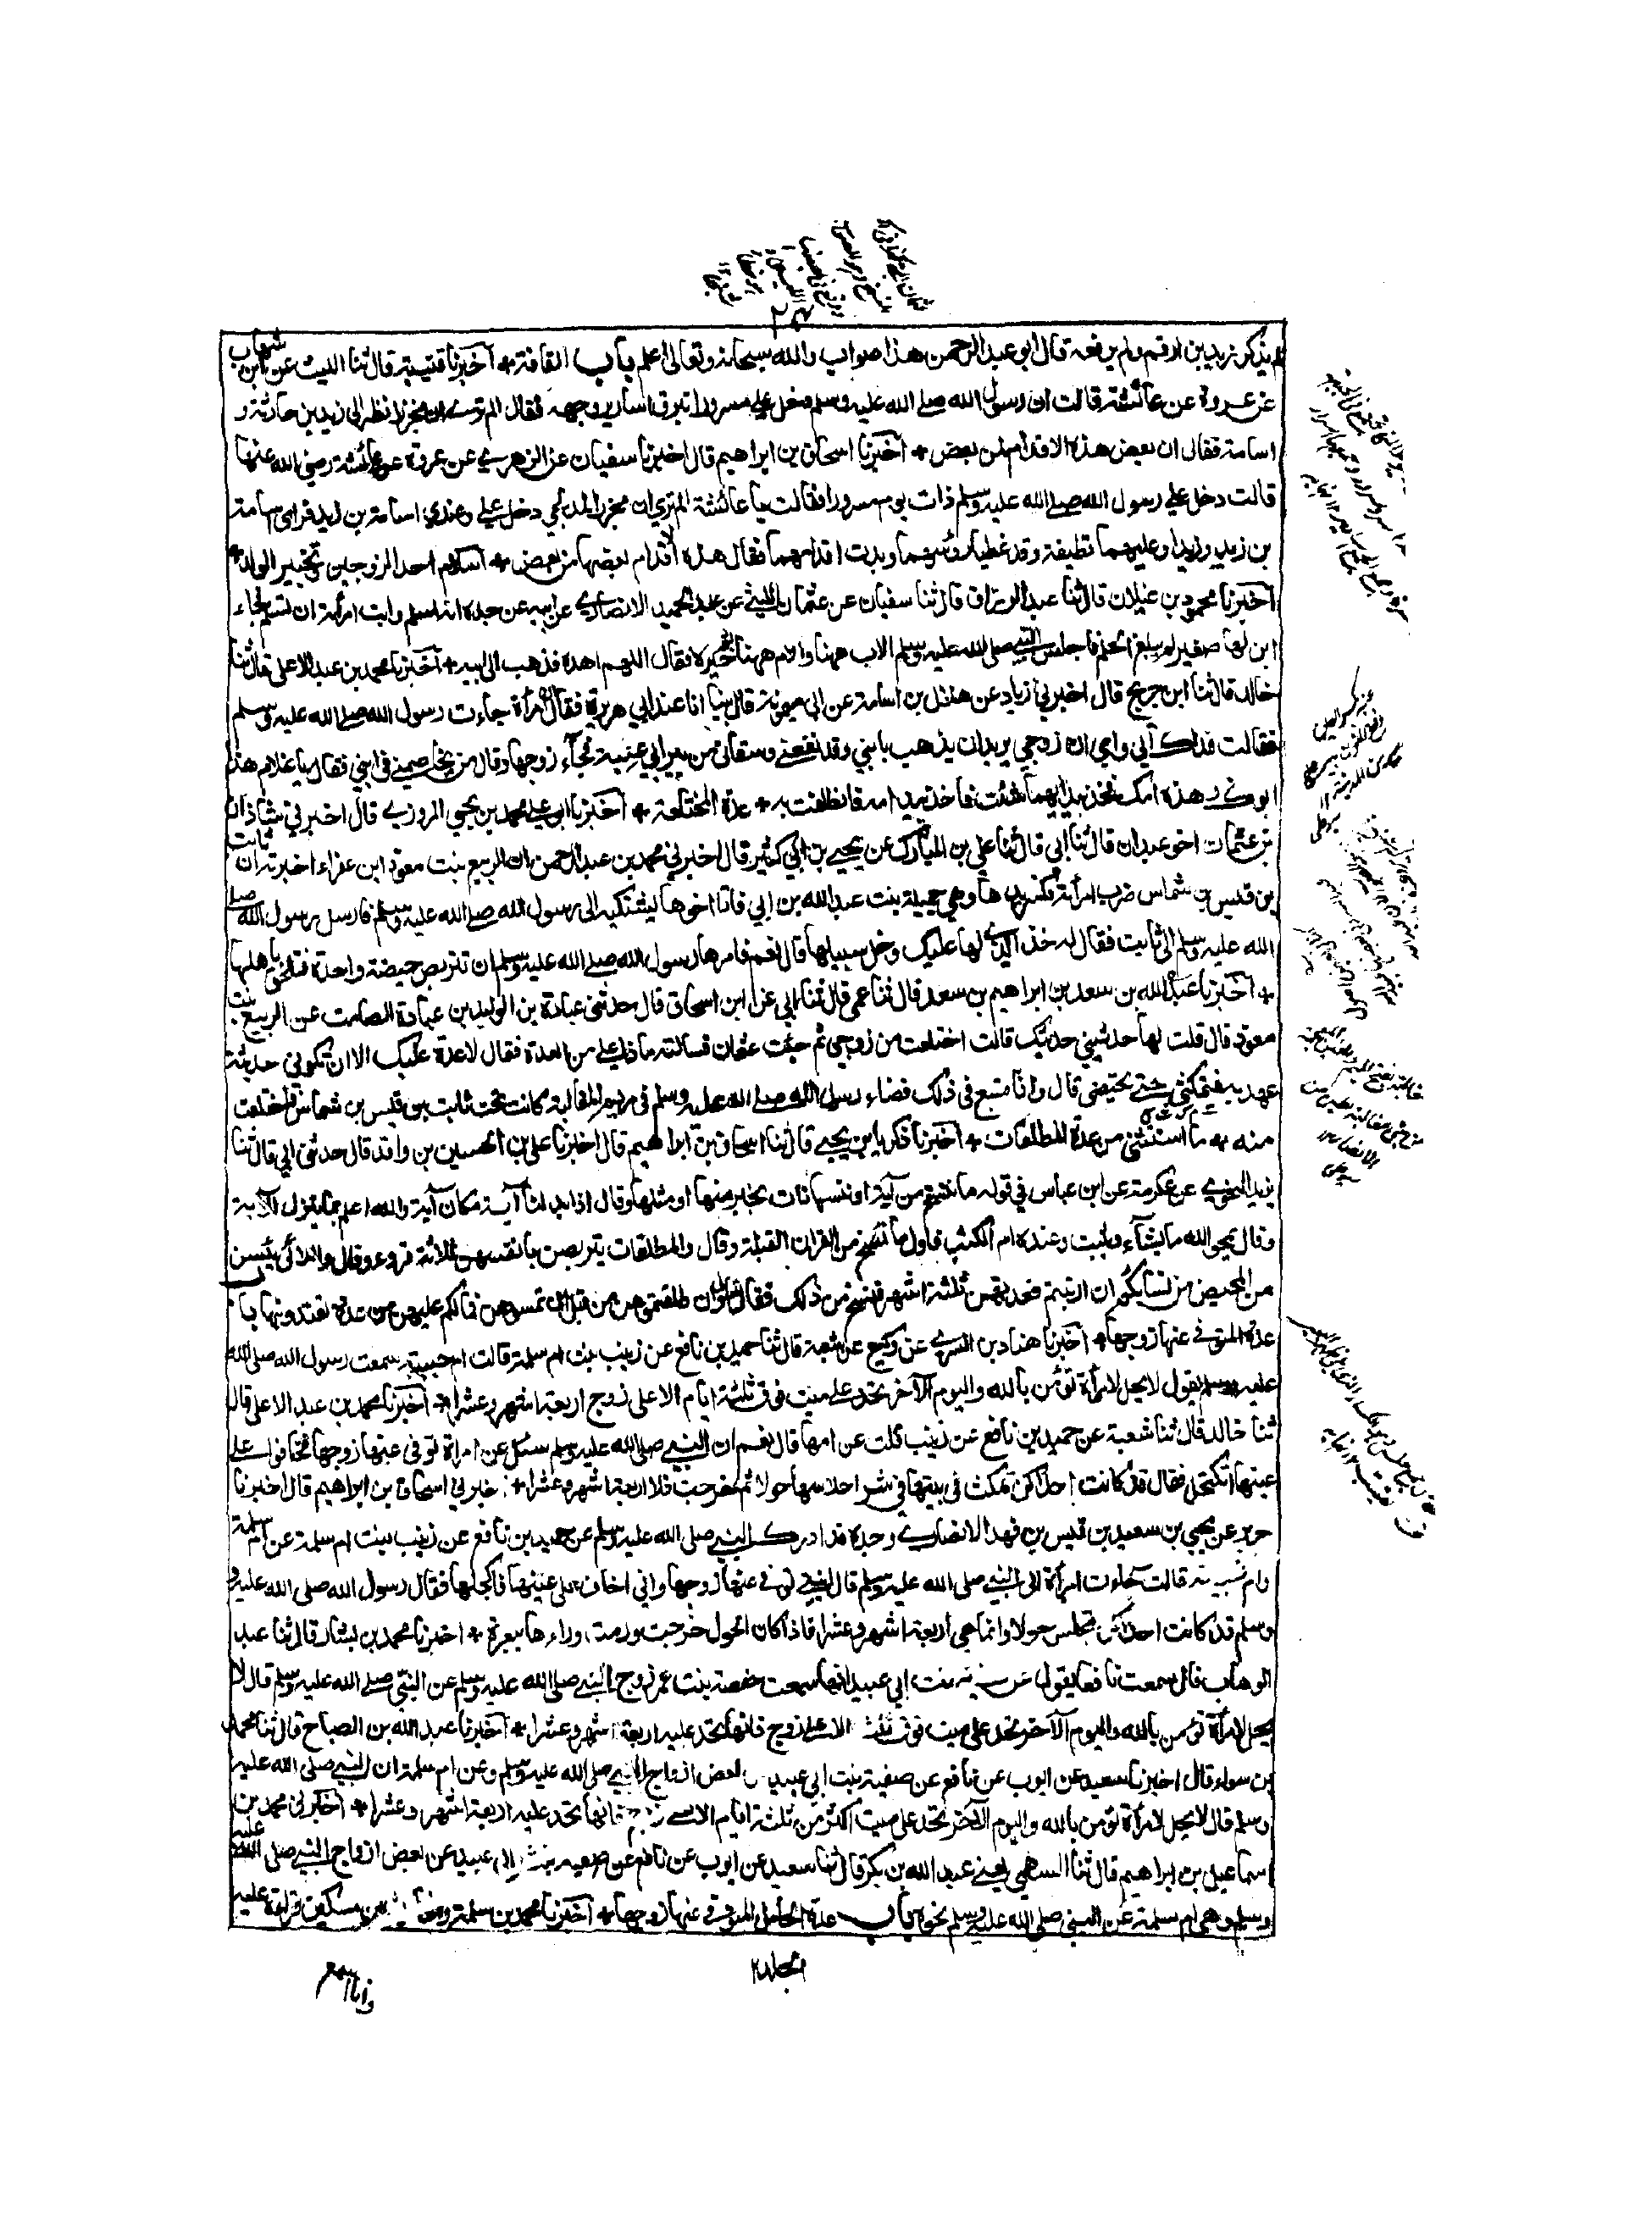 لم يذكر زيد بن ارقم ولم يرفعه قال ابو عبد الرحمن هذا صواب والله سبحانه وتعالى اعلم باب القافة + اخبرنا قتيبة قال ثنا الليث عن ابن شهاب
عن عروة عن عائشة قالت ان رسول الله صلى الله عليه وسلم دخل علي مسرورا تبرق اسارير وجهه فقال الم تري ان مجززا نظر الى زيد بن حارثة و
اسامة فقال ان بعض هذه الاقدام لمن بعض + اخبرنا اسحاق بن ابراهيم قال اخبرنا سفيان عن الزهري عن عروة عن عائشة رضي الله عنها
قالت دخل علي رسول الله صلى الله عليه وسلم ذات يوم مسرورا فقالت يا عائشة الم تري ان مجززا المدلجي دخل علي وعندي اسامة بن زيد فراى اسامة
بن زيد وزيدا وعليهما قطيفة وقد غطيا رؤسهما وبدت اقدامهما فقال هذه اقدام بعضها من بعض + اسلام احد الزوجين وتخيير الولد +
اخبرنا محمود بن غيلان قال ثنا عبد الرزاق قال ثنا سفيان عن عثمان البتي عن عبد الحميد الانصاري عن ابيه عن جده انه اسلم وابت امرأته ان تسلم فجاء
ابن لهما صغير لم يبلغ الحلم فاجلس النبي صلى الله عليه وسلم الاب ههنا والام ههنا ثم خيره فقال اللهم اهده فذهب الى ابيه + اخبرنا محمد بن عبد الاعلى قال ثنا
خالد قال ثنا ابن جريج قال اخبرني زياد عن هلال بن اسامة عن ابي ميمونة قال بينا انا عند ابي هريرة فقال ان امرأة جاءت رسول الله صلى الله عليه وسلم
فقالت فداك ابي وامي ان زوجي يريد ان يذهب بابني وقد نفعني وسقاني من بير ابي عنبة فجاء زوجها وقال من يخاصمني في ابني فقال يا غلام هذا
ابوك وهذه امك فخذ بيد ايهما شئت فاخذ بيد امه فانطلقت به + عدة المختلعة + اخبرنا ابو علي محمد بن يحيى المروزي قال اخبرني شاذان
بن عثمان اخو عبدان قال ثنا ابي قال ثنا علي بن المبارك عن يحيى بن ابي كثير قال اخبرني محمد بن عبد الرحمن ان الربيع بنت معوذ ابن عفراء اخبرته ان ثابت
بن قيس بن شماس ضرب امرأته فكسر يدها وهي جميلة بنت عبد الله بن ابي فاتا اخوها يشتكيه الى رسول الله صلى الله عليه وسلم فارسل رسول الله صلى
الله عليه وسلم الى ثابت فقال له خذ الذي لها عليك وخل سبيلها قال نعم فامرها رسول الله صلى الله عليه وسلم ان تتربص حيضة واحدة فتلحق باهلها
+ اخبرنا عبد الله بن سعد بن ابراهيم بن سعد قال ثنا عمي قال ثنا ابي عن ابن اسحاق قال حدثني عبادة بن الوليد بن عبادة الصامت عن الربيع بنت
معوذ قال قلت لها حدثيني حديثك قالت اختلعت من زوجي ثم جئت عثمان فسالته ماذا علي من العدة فقال لا عدة عليك الا ان تكوني حديثة
عهد به فتمكثي حتى تحيضي قال وانا متبع في ذلك قضاء رسول الله صلى الله عليه وسلم في مريم المغالية كانت تحت ثابت بن قيس بن شماس فاختلعت
منه + ما استثنى من عدة المطلقات + اخبرنا زكريا بن يحيى قال ثنا اسحاق بن ابراهيم قال اخبرنا علي بن الحسين بن واقد قال حدثني ابي قال ثنا
يزيد النحوي عن عكرمة عن ابن عباس في قوله ما ننسخ من آية او ننسها نات بخير منها او مثلها وقال اذا بدلنا آية مكان آية والله اعلم بما ينزل الآية
وقال يمحو الله ما يشاء ويثبت وعنده ام الكتب فاول ما نسخ من القران القبلة وقال والمطلقات يتربصن بانفسهن ثلاثة قروء وقال واللائي يئسن
من المحيض من نسايكم ان ارتبتم فعدتهن ثلثة اشهر فنسخ من ذلك فقال وان طلقتموهن من قبل ان تمسوهن فما لكم عليهن من عدة تعتدونها باب
عدة المتوفى عنها زوجها + اخبرنا هناد بن السري عن وكيع عن شعبة قال ثنا حميد بن نافع عن زينب بنت ام سلمة قالت ام حبيبة سمعت رسول الله صلى الله
عليه وسلم يقول لا يحل لامرأة تؤمن بالله واليوم الآخر تحد على ميت فوق ثلثة ايام الا على زوج اربعة اشهر وعشرا + اخبرنا محمد بن عبد الاعلى قال
ثنا خالد قال ثنا شعبة عن حميد بن نافع عن زينب قلت عن امها قال نعم ان النبي صلى الله عليه وسلم سئل عن امراة توفي عنها زوجها فخافوا على
عينها اتكتحل فقال قد كانت احداكن تمكث في بيتها في شر احلاسها حولا ثم خرجت فلا اربعة اشهر وعشرا + اخبرني اسحاق بن ابراهيم قال اخبرنا
جرير عن يحيى بن سعيد بن قيس بن فهد الانصاري وجده قد ادرك النبي صلى الله عليه وسلم عن حميد بن نافع عن زينب بنت ام سلمة عن ام سلمة
وام حبيبة قالت جاءت امرأة الى النبي صلى الله عليه وسلم قال ابنتي توفي عنها زوجها واني اخاف على عينها فاكحلها فقال رسول الله صلى الله عليه و
وسلم قد كانت احداكن تجلس حولا وانما هي اربعة اشهر وعشرا فاذا كان الحول خرجت ورمت وراءها ببعرة + اخبرنا محمد بن بشار قال ثنا عبد
الوهاب قال سمعت نافعا يقول عن صفية بنت ابي عبيد انها سمعت حفصة بنت عمر زوج النبي صلى الله عليه وسلم عن النبي صلى الله عليه وسلم قال لا
يحل لامرأة تؤمن بالله واليوم الآخر تحد على ميت فوق ثلث الا على زوج فانها تحد عليه اربعة اشهر وعشرا + اخبرنا عبد الله بن الصباح قال ثنا محمد
بن سواء قال اخبرنا سعيد عن ايوب عن نافع عن صفية بنت ابي عبيد بعض ازواج النبي صلى الله عليه وسلم وعن ام سلمة ان النبي صلى الله عليه
وسلم قال لا يحل لامرأة تؤمن بالله واليوم الآخر تحد على ميت اكثر من ثلثة ايام الا على زوج فانها تحد عليه اربعة اشهر وعشرا + اخبرني محمد بن
اسماعيل بن ابراهيم قال ثنا السهمي يعني عبد الله بن بكر قال ثنا سعيد عن ايوب عن نافع عن صفية بنت ابي عبيد عن بعض ازواج النبي صلى الله عليه
وسلم وهي ام سلمة عن النبي صلى الله عليه وسلم نحوه باب عدة الحامل المتوفى عنها زوجها + اخبرنا محمد بن سلمة بن مسكين قراءة عليه
مجلد ٢
وانا اسمع